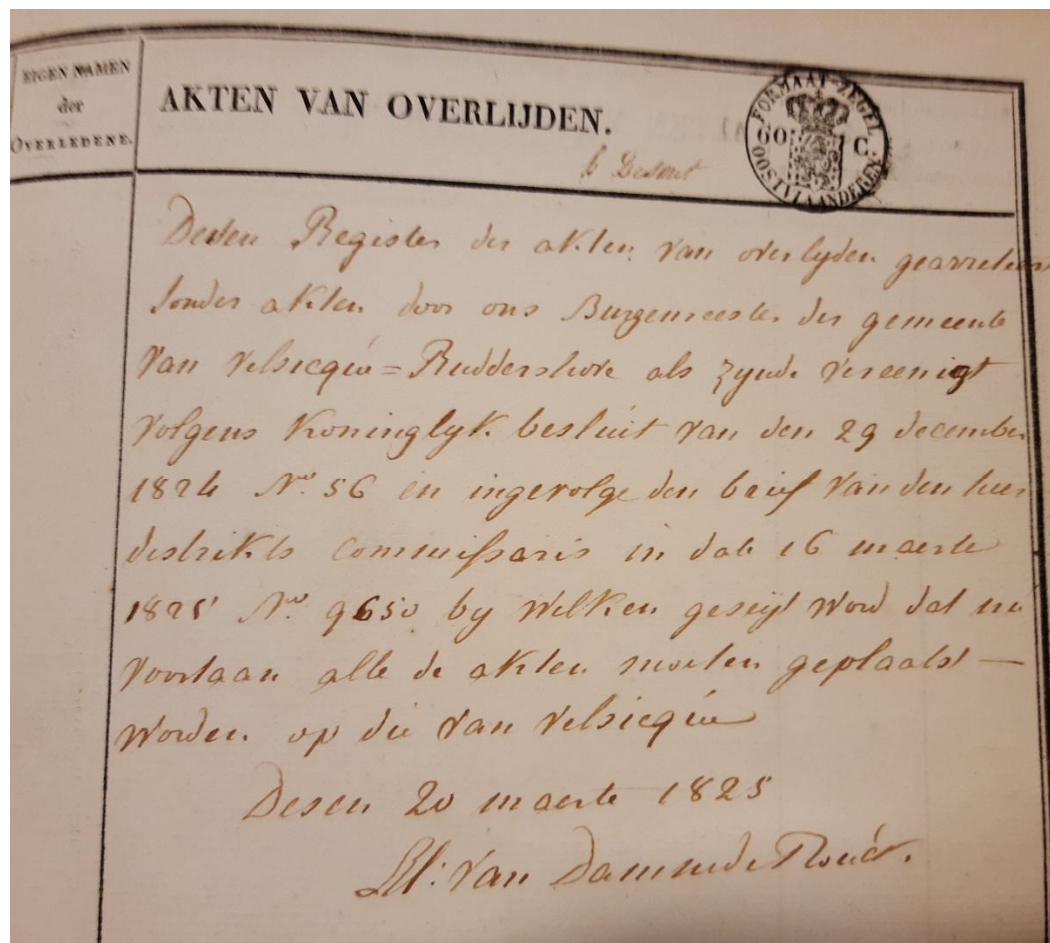 EIGEN NAMEN
der
OVERLEDENE.
AKTEN VAN OVERLIJDEN.
FORMAAT-ZEGEL
60 C.
OOSTVLAANDEREN.
Desen Register der akten van overlyden gearreteert
sonder akten door ons Burgemeester der gemeente
van velsicque=Ruddershove als zynde vereenigt
volgens Koninglyk besluit van den 29 december
1824 No. 56 en ingevolge den brief van den heer
distrikts commissaris in date 16 maerte
1825 No. 9650 by welken geseyt word dat nu
voortaan alle de akten moeten geplaatst —
worden op die van velsicque
Desen 20 maerte 1825
Van Damme de